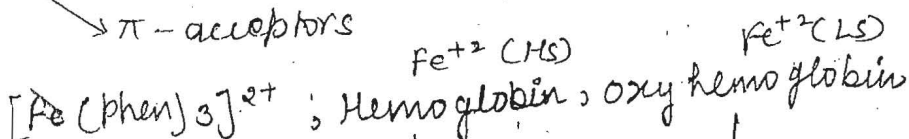 → π-acceptors
Fe+2 (HS) Fe+2 (LS)
[Fe (phen)3]2+ ; Hemoglobin, oxyhemoglobin